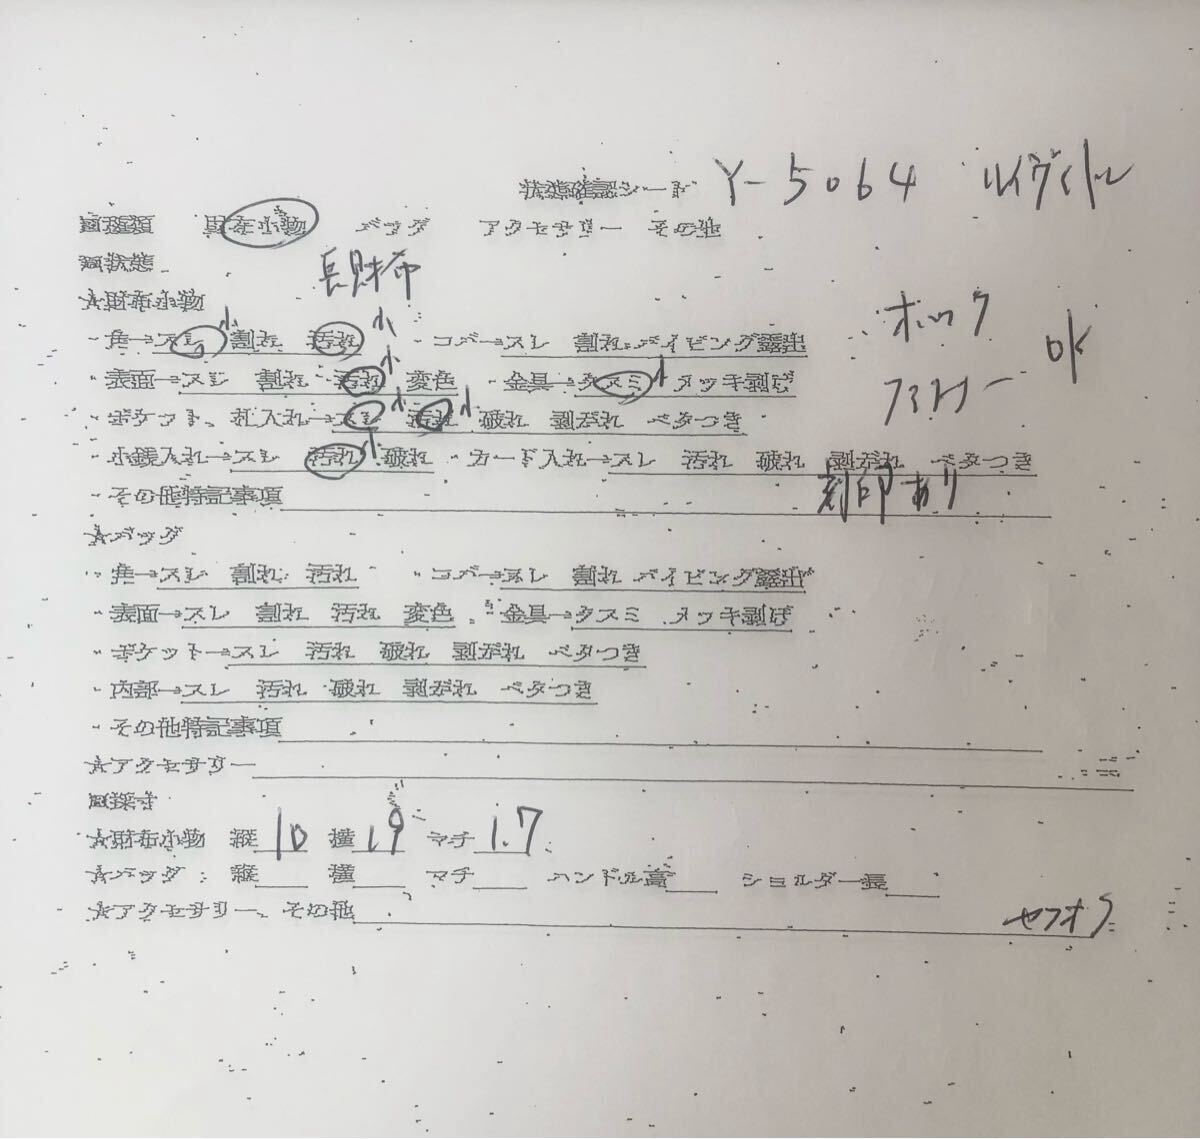 状態確認シート Y-5064 ルイヴィトン
■種類 財布小物 バッグ アクセサリー その他
■状態 長財布
★財布小物
・角→スレ 小 割れ 汚れ 小 ・コバ→スレ 割れ パイピング露出 ホック
・表面→スレ 割れ 汚れ 小 変色 ・金具→クスミ 小 メッキ剥げ ファスナー OK
・ポケット、札入れ→スレ 小 汚れ 小 破れ 剥がれ ベタつき
・小銭入れ→スレ 汚れ 小 破れ ・カード入れ→スレ 汚れ 破れ 剥がれ ベタつき
・その他特記事項 刻印あり
★バッグ
・角→スレ 割れ 汚れ ・コバ→スレ 割れ パイピング露出
・表面→スレ 割れ 汚れ 変色 ・金具→クスミ メッキ剥げ
・ポケット→スレ 汚れ 破れ 剥がれ ベタつき
・内部→スレ 汚れ 破れ 剥がれ ベタつき
・その他特記事項
★アクセサリー
■採寸
★財布小物 縦 10 横 19 マチ 1.7
★バッグ 縦 横 マチ ハンドル高 ショルダー長
★アクセサリー、その他